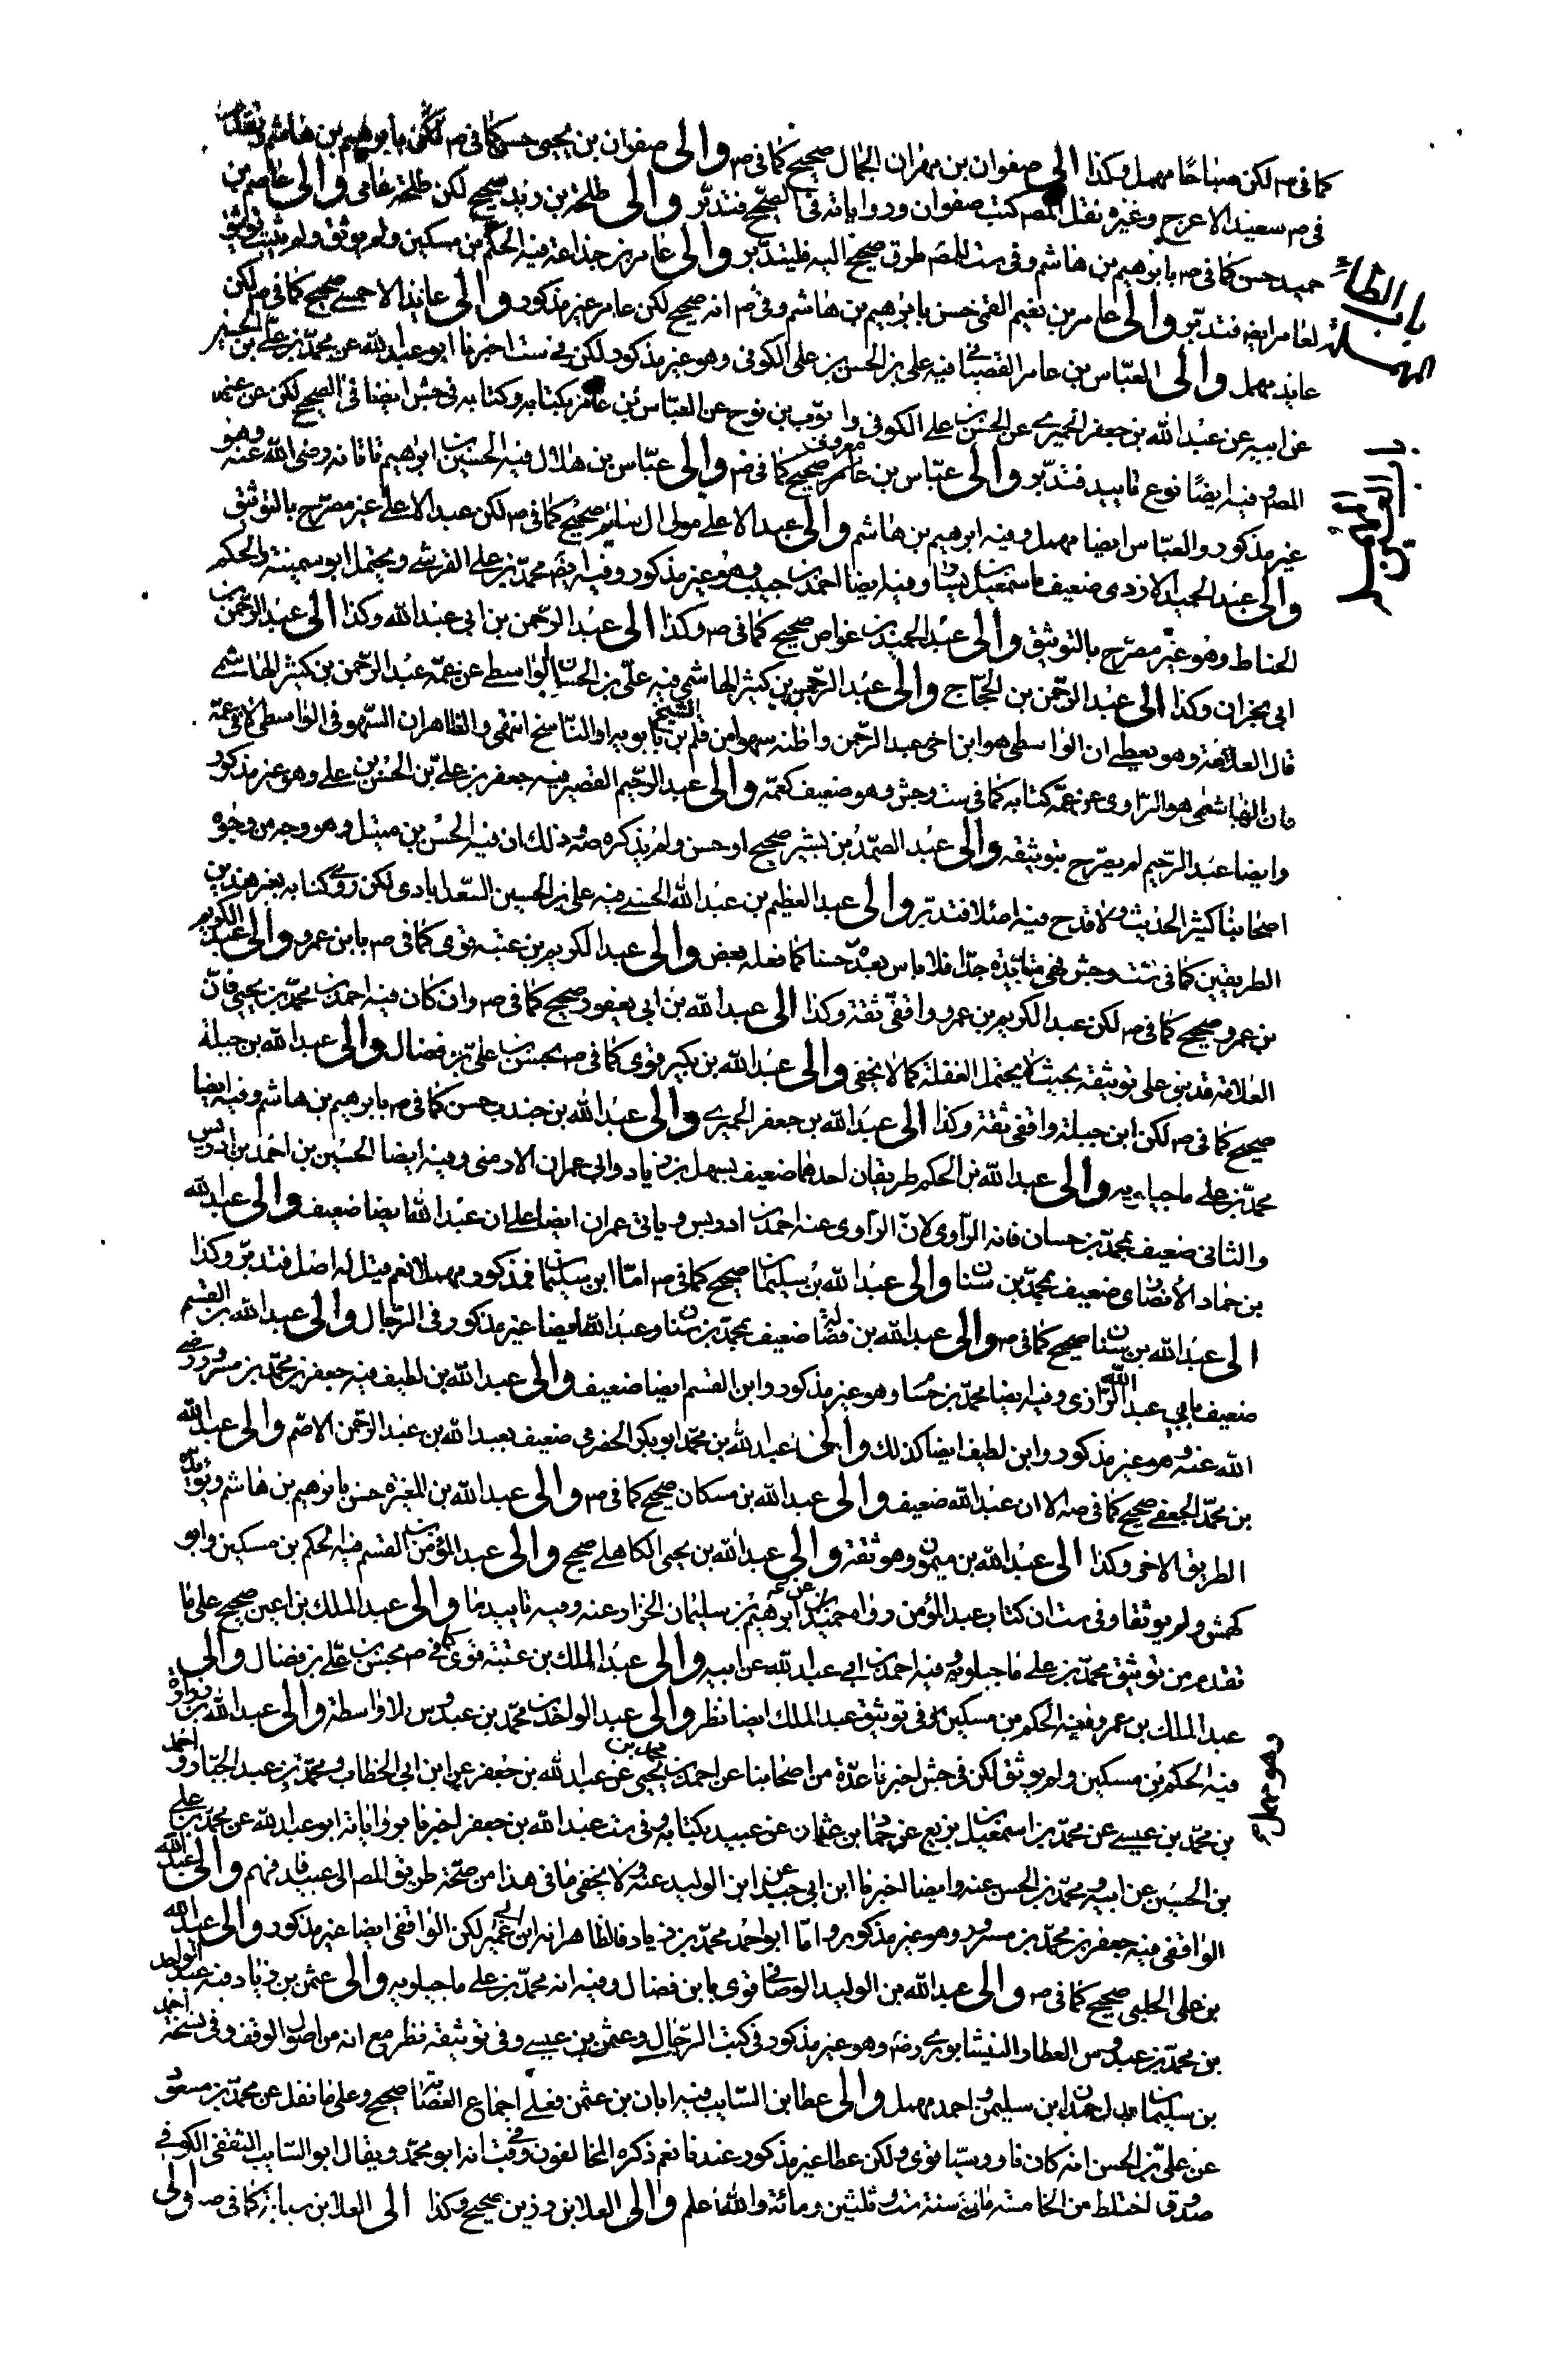 كما في صه لكن صباحا مهمل وكذا الى صفوان بن مهران الجمال صحيح كما في صه والى صفوان بن يحيى حسن كما في صه لكن بابرهيم بن هاشم
في صه سعيد الاعرج وغيره نقل المصر كتب صفوان ورواياته في الصحيح فتدبر والى طلحة بن زيد صحيح لكن طلحة عامى والى عاصم بن
حميد حسن كما في صه بابرهيم بن هاشم وفي ست للمصر طرق صحيح اليه فليتدبر والى عامر بن جذاعة فيه الحكم بن مسكين ولم يوثق ولم يثبت توثيق
باب الطاء
المهملة
لعامر ايضه فتدبر والى عامر بن نعيم القمى حسن بابرهيم بن هاشم وفي صه انه صحيح لكن عامر غير مذكور والى عايذ الاحمسى صحيح كما في صه لكن
عايذ مهمل والى العباس بن عامر القصباني فيه على بن الحسن بن على الكوفى وهو غير مذكور لكن في ست اخبرنا ابو عبد الله عن محمد بن على بن الحسين
باب العين المهملة
عن ابيه عن عبد الله بن جعفر الحميرى عن الحسن بن على الكوفى وايوب بن نوح عن العباس بن عامر بكتابه وكتابه في جش ايضا في الصحيح لكن عن غير
المصر وفيه ايضا نوع تاييد فتدبر والى عباس بن عامر معروف صحيح كما في صه والى عباس بن هلال فيه الحسين بن ابرهيم تاتانه رضى الله عنه وهو
غير مذكور والعباس ايضا مهمل وفيه ابرهيم بن هاشم والى عبد الاعلى مولى ال سام صحيح كما في صه لكن عبد الاعلى غير مصرح بالتوثيق
والى عبد الحميد الازدى ضعيف باسمعيل بن يسار وفيه ايضا احمد بن حبيب وهو غير مذكور وفيه ايضه محمد بن على القرشى ويحتمل ابو سمينة والحكم
الحناط وهو غير مصرح بالتوثيق والى عبد الحميد بن عواض صحيح كما في صه وكذا الى عبد الرحمن بن ابى عبد الله وكذا الى عبد الرحمن بن
ابى نجران وكذا الى عبد الرحمن بن الحجاج والى عبد الرحمن بن كثير الهاشمى فيه على بن الحسان الواسطى عن عمه عبد الرحمن بن كثير الهاشمى
قال العلامة وهو يعطى ان الواسطى هو ابن اخى عبد الرحمن واظنه سهوا من قلم الشيخ بن بابويه او الناسخ انتهى والظاهر ان السهو في الواسطى كما في عمه
فان الهاشمى هو الراوى عن عمه كتابه كما في ست وجش وهو ضعيف كعمه والى عبد الرحيم القصير فيه جعفر بن على بن الحسن بن على وهو غير مذكور
وايضا عبد الرحيم لم يصرح بتوثيقه والى عبد الصمد بن بشير صحيح او حسن ولم يذكره صه وذلك ان فيه الحسن بن متيل وهو وجه من وجوه
اصحابنا كثير الحديث ولا قدح فيه اصلا فتدبر والى عبد العظيم بن عبد الله الحسنى فيه على بن الحسين السعدابادى لكن روى كتابه بغير هذين
الطريقين كما في ست وجش فهى مؤيدة جدا فلا باس بعده حسنا كما فعله بعض والى عبد الكريم بن عتبة قوى كما في صه بابن عمرو والى عبد الكريم
بن عمرو صحيح كما في صه لكن عبد الكريم بن عمرو واقفى ثقة وكذا الى عبد الله بن ابى يعفور صحيح كما في صه وان كان فيه احمد بن محمد بن يحيى فان
العلامة قد بنى على توثيقه بحيث لا يحتمل الغفلة كما لا يخفى والى عبد الله بن بكير قوى كما في صه بحسن بن على بن فضال والى عبد الله بن جبلة
صحيح كما في صه لكن ابن جبلة واقفى ثقة وكذا الى عبد الله بن جعفر الحميرى والى عبد الله بن جندب حسن كما في صه بابرهيم بن هاشم وفيه ايضا
محمد بن على ماجيلويه والى عبد الله بن الحكم طريقان احدهما ضعيف بسهل بن زياد وابى عمران الارمنى وفيه ايضا الحسين بن احمد بن ادريس
والثانى ضعيف بمحمد بن حسان فانه الراوى لان الراوى عنه احمد بن ادريس وبابى عمران ايضا على ان عبد الله ايضا ضعيف والى عبد الله
بن حماد الانصارى ضعيف بمحمد بن سنان والى عبد الله بن سليمان صحيح كما في صه اما ابن سليمان فمذكور مهملا نعم قيل له اصل فتدبر وكذا
الى عبد الله بن سنان صحيح كما في صه والى عبد الله بن فضالة ضعيف بمحمد بن سنان وعبد الله ايضا غير مذكور في الرجال والى عبد الله بن القسم
ضعيف بابى عبد الله الرازى وفيه ايضا محمد بن حسان وهو غير مذكور وابن القسم ايضا ضعيف والى عبد الله بن لطيف فيه جعفر بن محمد بن مسرور رضى
الله عنه وهو غير مذكور وابن لطيف ايضا كذلك والى عبد الله بن محمد ابو بكر الحضرمى ضعيف بعبد الله بن عبد الرحمن الاصم والى عبد الله
بن محمد الجعفى صحيح كما في صه الا ان عبد الله ضعيف والى عبد الله بن مسكان صحيح كما في صه والى عبد الله بن المغيرة حسن بابرهيم بن هاشم ويؤيده
الطريق الاخر وكذا الى عبد الله بن ميمون وهو ثقة والى عبد الله بن يحيى الكاهلى صحيح والى عبد المؤمن بن القسم فيه الحكم بن مسكين وابو
كهمش ولم يوثقا وفي ست ان كتاب عبد المؤمن رواه حميد عن ابرهيم بن سليمان الخزاز عنه وفيه تاييد ما والى عبد الملك بن اعين صحيح على ما
تقدم من توثيق محمد بن على ماجيلويه وفيه احمد بن ابى عبد الله عن ابيه والى عبد الملك بن عتبة قوى كما في صه بحسن بن على بن فضال والى
عبد الملك بن عمرو ففيه الحكم بن مسكين وفي توثيق عبد الملك ايضا نظر والى عبد الواحد بن محمد بن عبدوس لا واسطة والى عبد الله بن زرارة
فيه الحكم بن مسكين ولم يوثق لكن في جش اخبرنا عدة من اصحابنا عن احمد بن محمد بن يحيى عن عبد الله بن جعفر عن ابن ابى الخطاب ومحمد بن عبد الجبار واحمد
بن محمد بن عيسى عن محمد بن اسمعيل بن بزيع عن حماد بن عثمان عن عبيد بكتابه وفي ست عبد الله بن جعفر اخبرنا برواياته ابو عبد الله عن محمد بن على
بن الحسين عن ابيه ومحمد بن الحسن عنه وايضا اخبرنا ابن ابى جيد عن ابن الوليد عنه ولا يخفى ما في هذا من صحة طريق المصر الى عبيد فافهم والى عبد الله
الواقفى فيه جعفر بن محمد بن مسرور وهو غير مذكور واما ابو احمد محمد بن زياد فالظاهر انه ابن ابى عمير لكن الواقفى ايضا غير مذكور والى عبد الله
بن على الحلبى صحيح كما في صه والى عبد الله بن الوليد الوصافى قوى بابن فضال وفيه انه محمد بن على ماجيلويه والى عثمن بن زياد فيه عبد الواحد
بن محمد بن عبدوس العطار النيشابورى رضه وهو غير مذكور في كتب الرجال وعثمن بن عيسى وفي توثيقه نظر مع انه من اصول الوقف وفي نسخة احمد
بن سليمان بدل حمدان بن سليمن واحمد مهمل والى عطا بن السايب فيه ابان بن عثمن فعلى اجماع العصابة صحيح وعلى ما نقل عن محمد بن مسعود
عن على بن الحسن انه كان ناووسيا قوى ولكن عطا غير مذكور عندنا نعم ذكره المخالفون وفي قب انه ابو محمد ويقال ابو السايب الثقفى الكوفى
صدوق اختلط من الخامسة مات سنة ست وثلثين ومائة والله اعلم والى العلا بن رزين صحيح وكذا الى العلا بن سيابة كما في صه والى